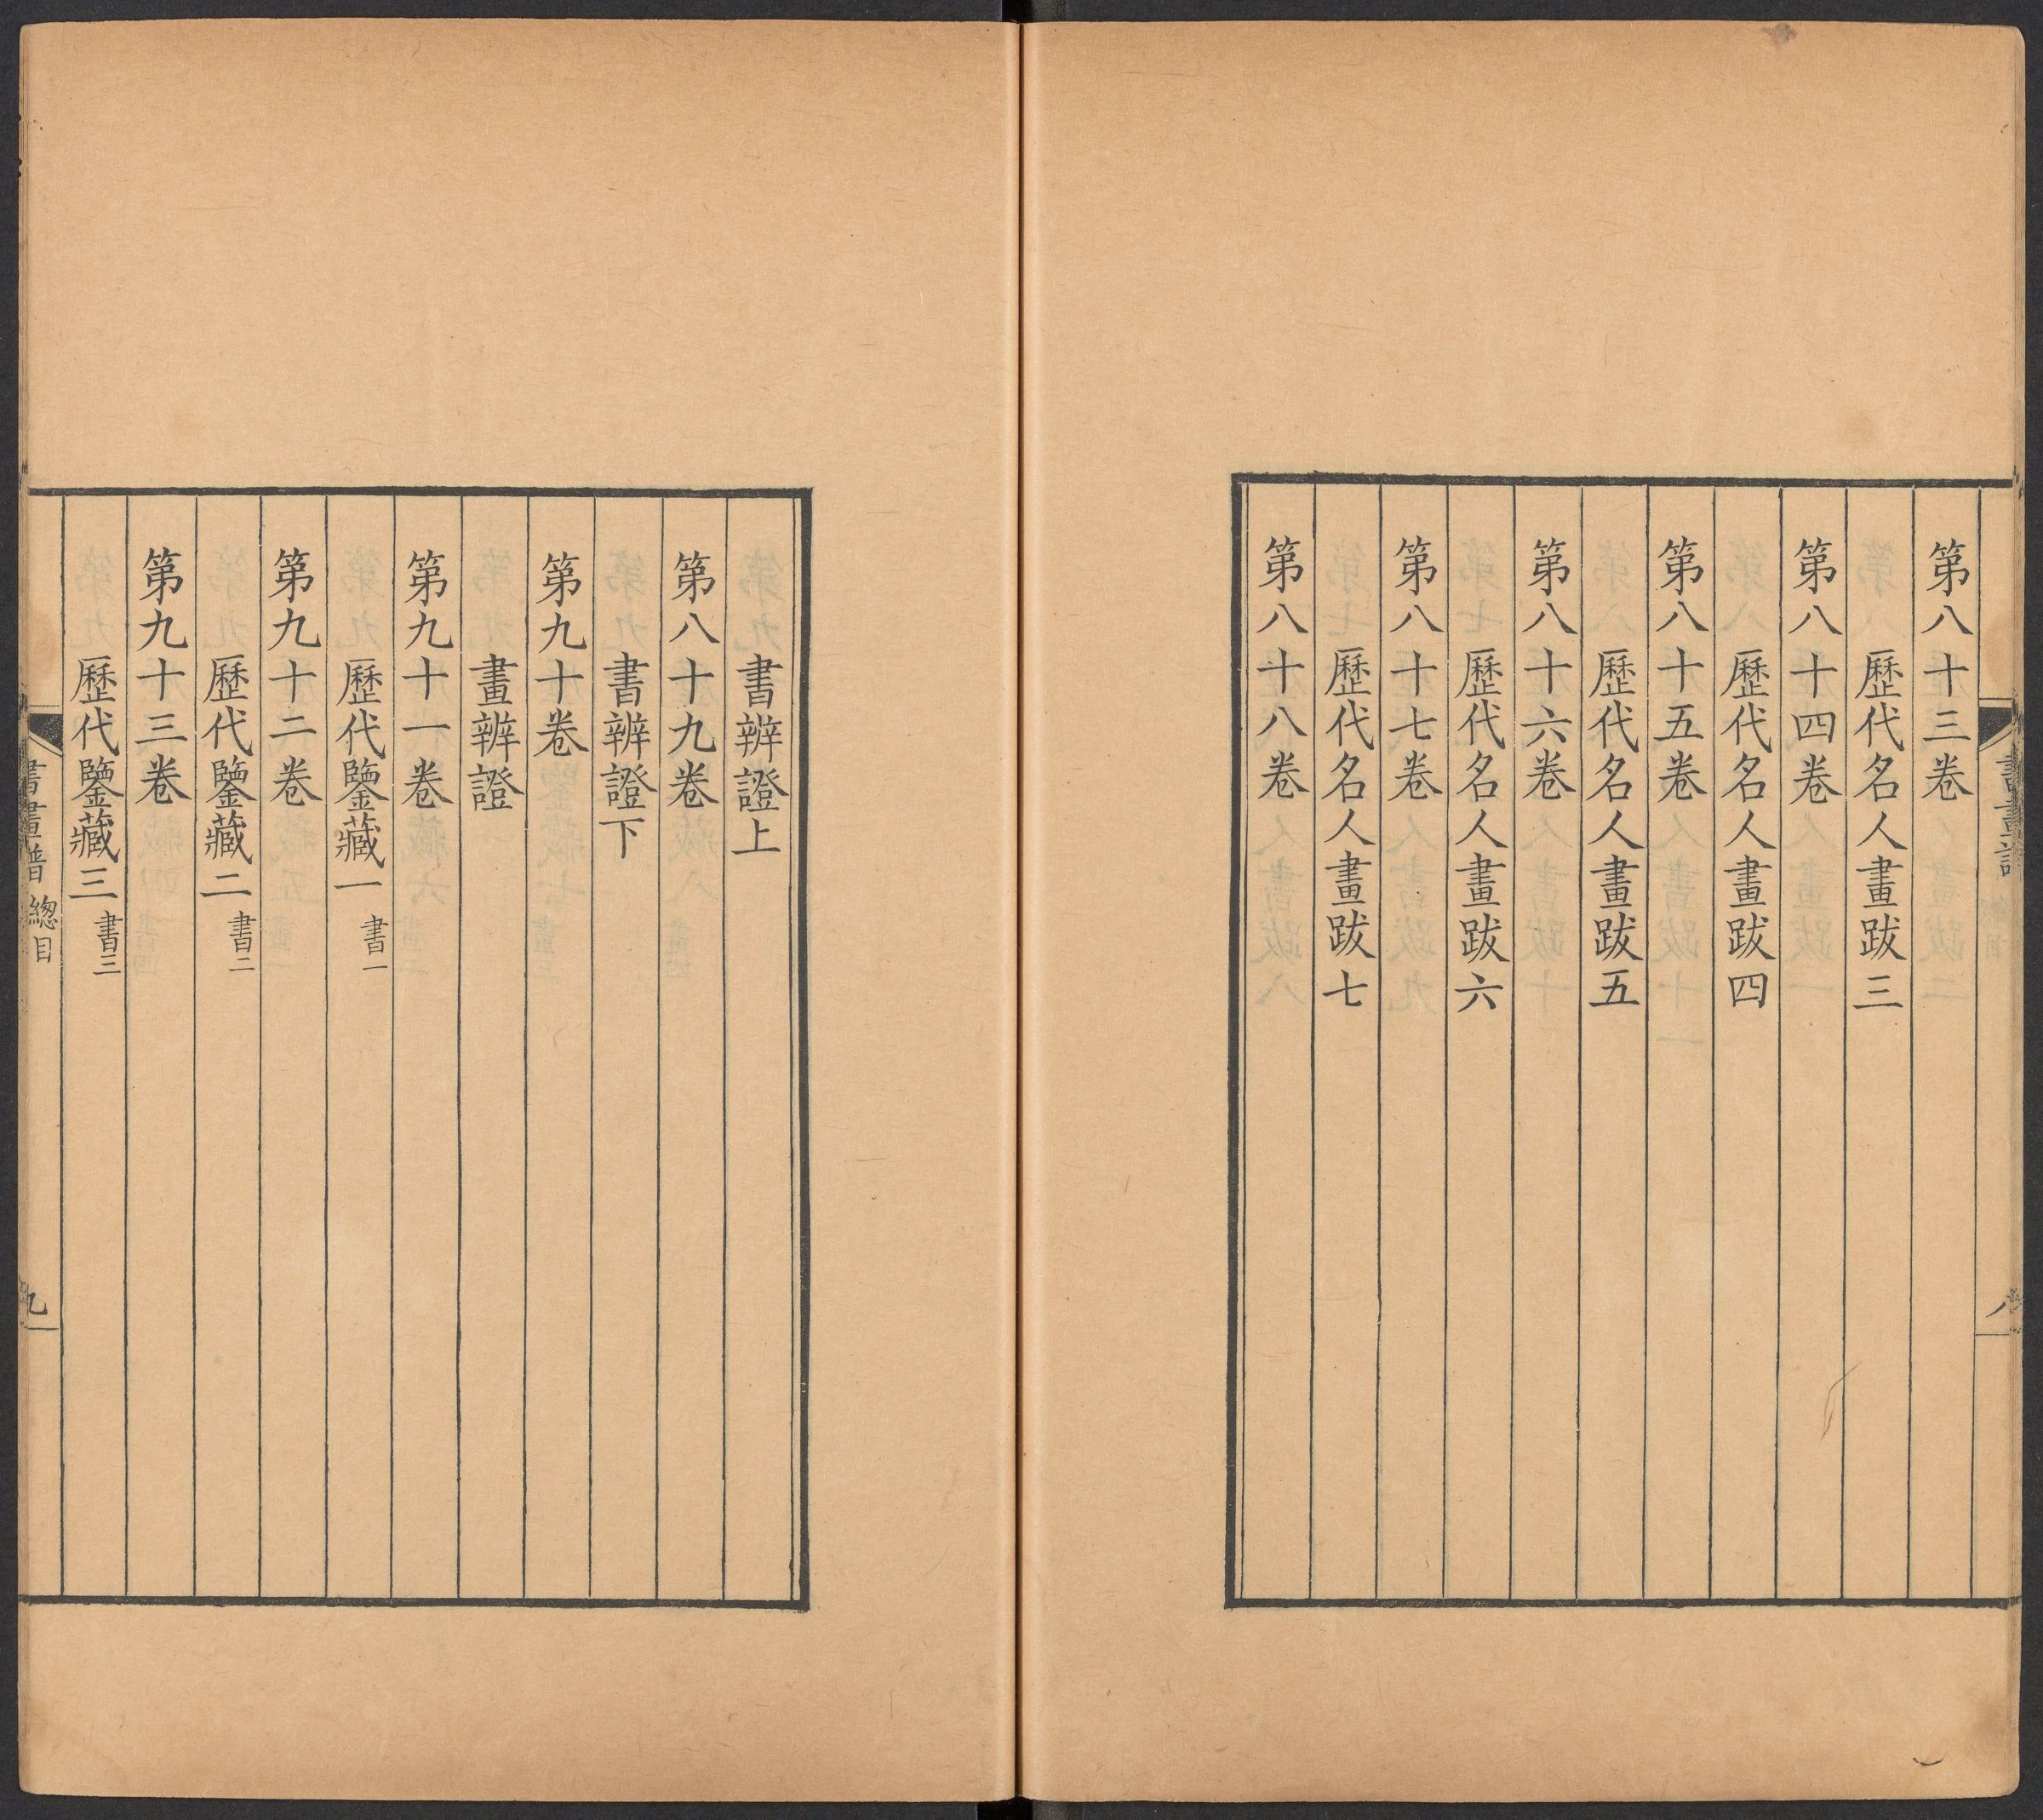 第八十三卷
歷代名人畫跋三
第八十四卷
歷代名人畫跋四
第八十五卷
歷代名人畫跋五
第八十六卷
歷代名人畫跋六
第八十七卷
歷代名人畫跋七
第八十八卷
書辨證上
第八十九卷
書辨證下
第九十卷
畫辨證
第九十一卷
歷代鑒藏一 書一
第九十二卷
歷代鑒藏二 書二
第九十三卷
歷代鑒藏三 書三
書畫譜 總目
九